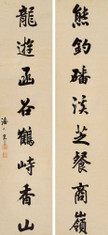 熊釣磻溪芝餐商嶺
龍遊函谷鶴峙香山